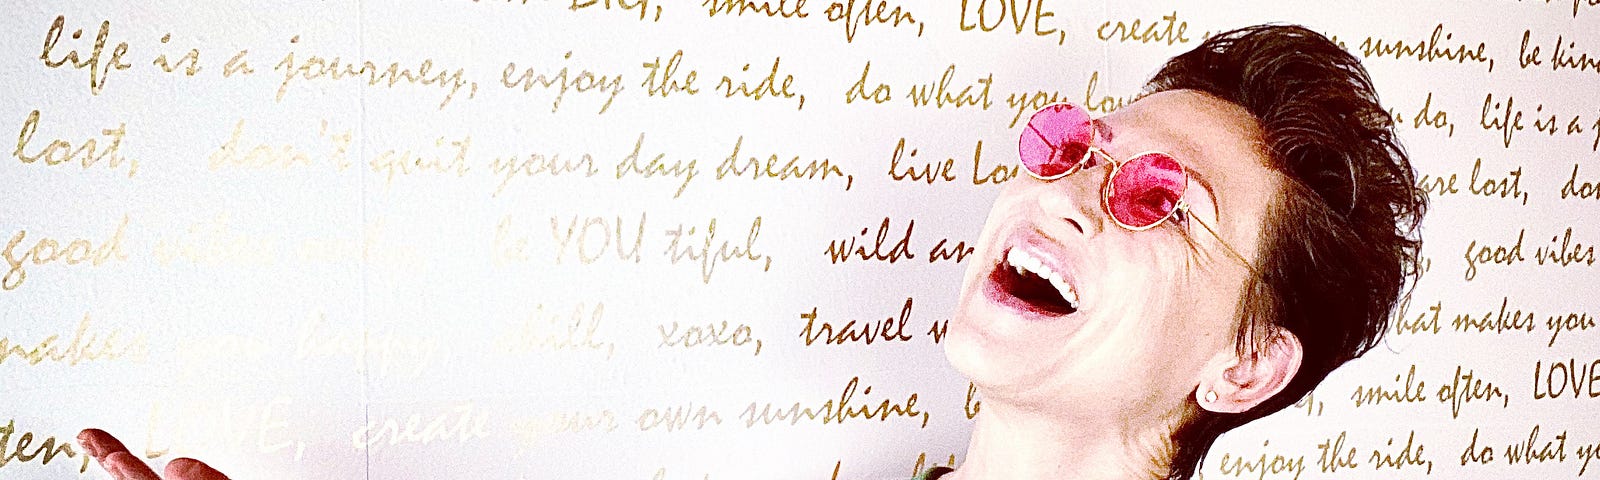 smile often, LOVE, create sunshine, be kind
life is a journey, enjoy the ride, do what you love do, life is a
lost, don't quit your day dream, live are lost,
good vibes only be YOU tiful, wild good vibes
makes you happy chill, xoxo, travel what makes you
ten, LOVE, create your own sunshine, smile often, LOVE
enjoy the ride, do what